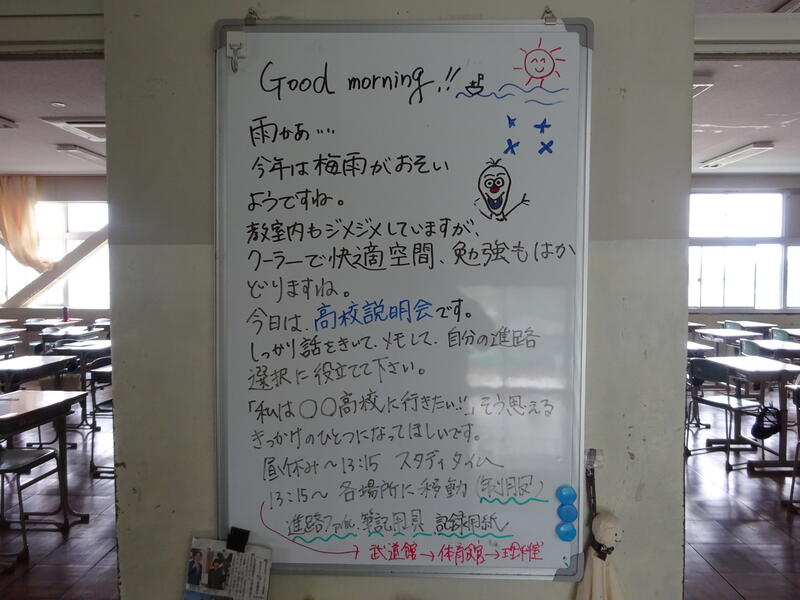 Good morning!!
雨かぁ…
今年は梅雨がおそい
ようですね。
教室内もジメジメしていますが、
クーラーで快適空間、勉強もはか
どりますね。
今日は、高校説明会です。
しっかり話をきいて、メモして、自分の進路
選択に役立てて下さい。
「私は〇〇高校に行きたい!!」そう思える
きっかけのひとつになってほしいです。
昼休み〜13:15 スタディタイム
13:15〜 各場所に移動(制服)
進路ファイル、筆記用具、記録用紙
→武道館→体育館→理科室